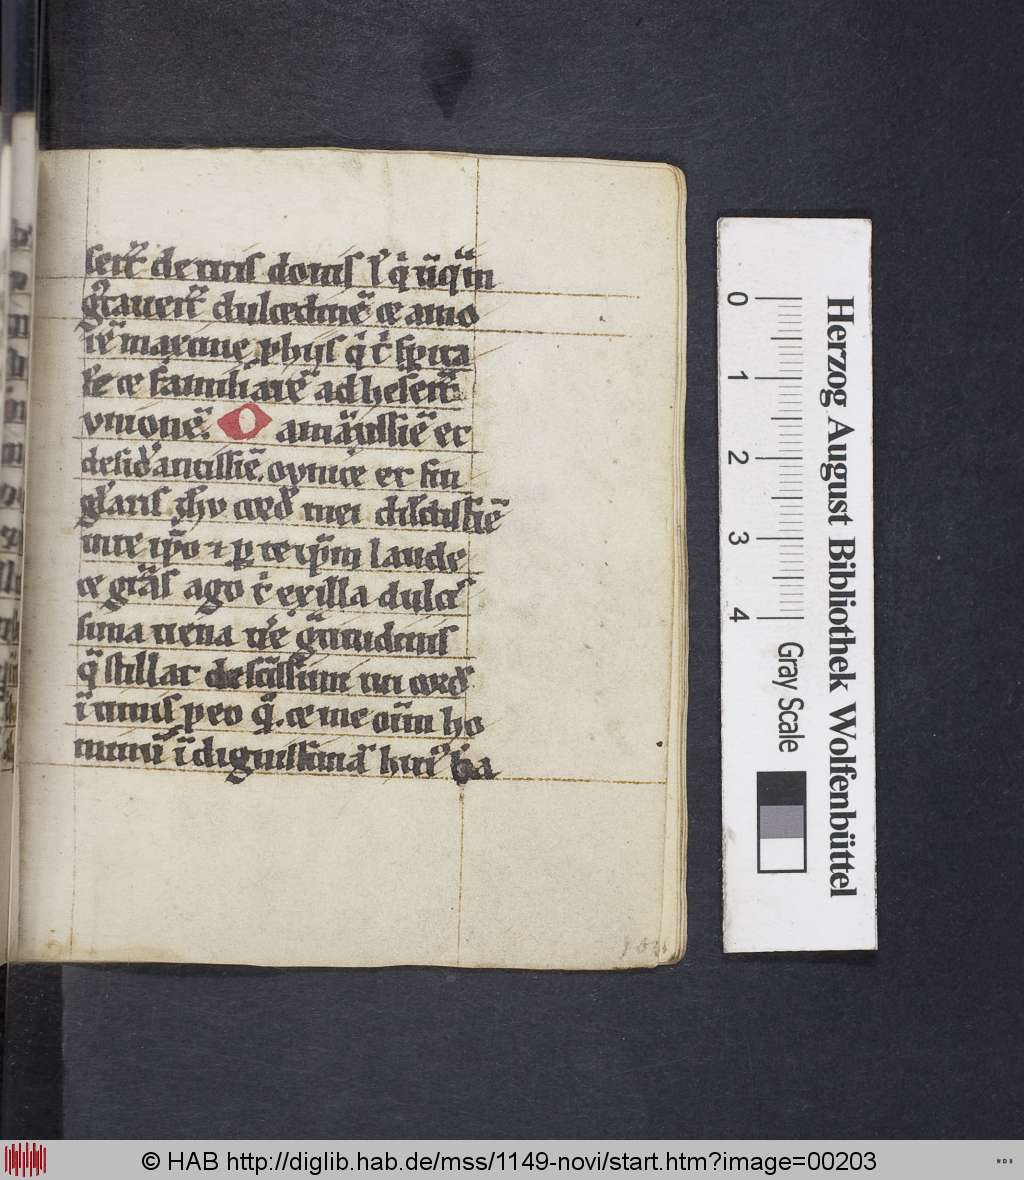 sert̃ de tuis donis s̃ q̇ ũq̃m
g̃tauert̃ dulcedinẽ ⁊ amo
rẽ maxime p hijs q̇ t̃ sp̃ita
lr̃ ⁊ familiãre adheser̃t
vnionẽ O amãtissiẽ et
desid̃antissiẽ o vnice et sin
gl̃aris ih̃u cord̃ mei dil̃ctissiẽ
in te ip̃o ⁊ ꝑ te ip̃m laude
⁊ grãs ago t̃ ex illa dulci
sima vena tue g̃titudinis
q̃ stillat de scĩssimi tui cord̃
ĩtimis p eo q̃ me om̃m ho
minũ ĩdignissima h̃ ba
Herzog August Bibliothek Wolfenbüttel
0 1 2 3 4 Gray Scale
© HAB http://diglib.hab.de/mss/1149-novi/start.htm?image=00203